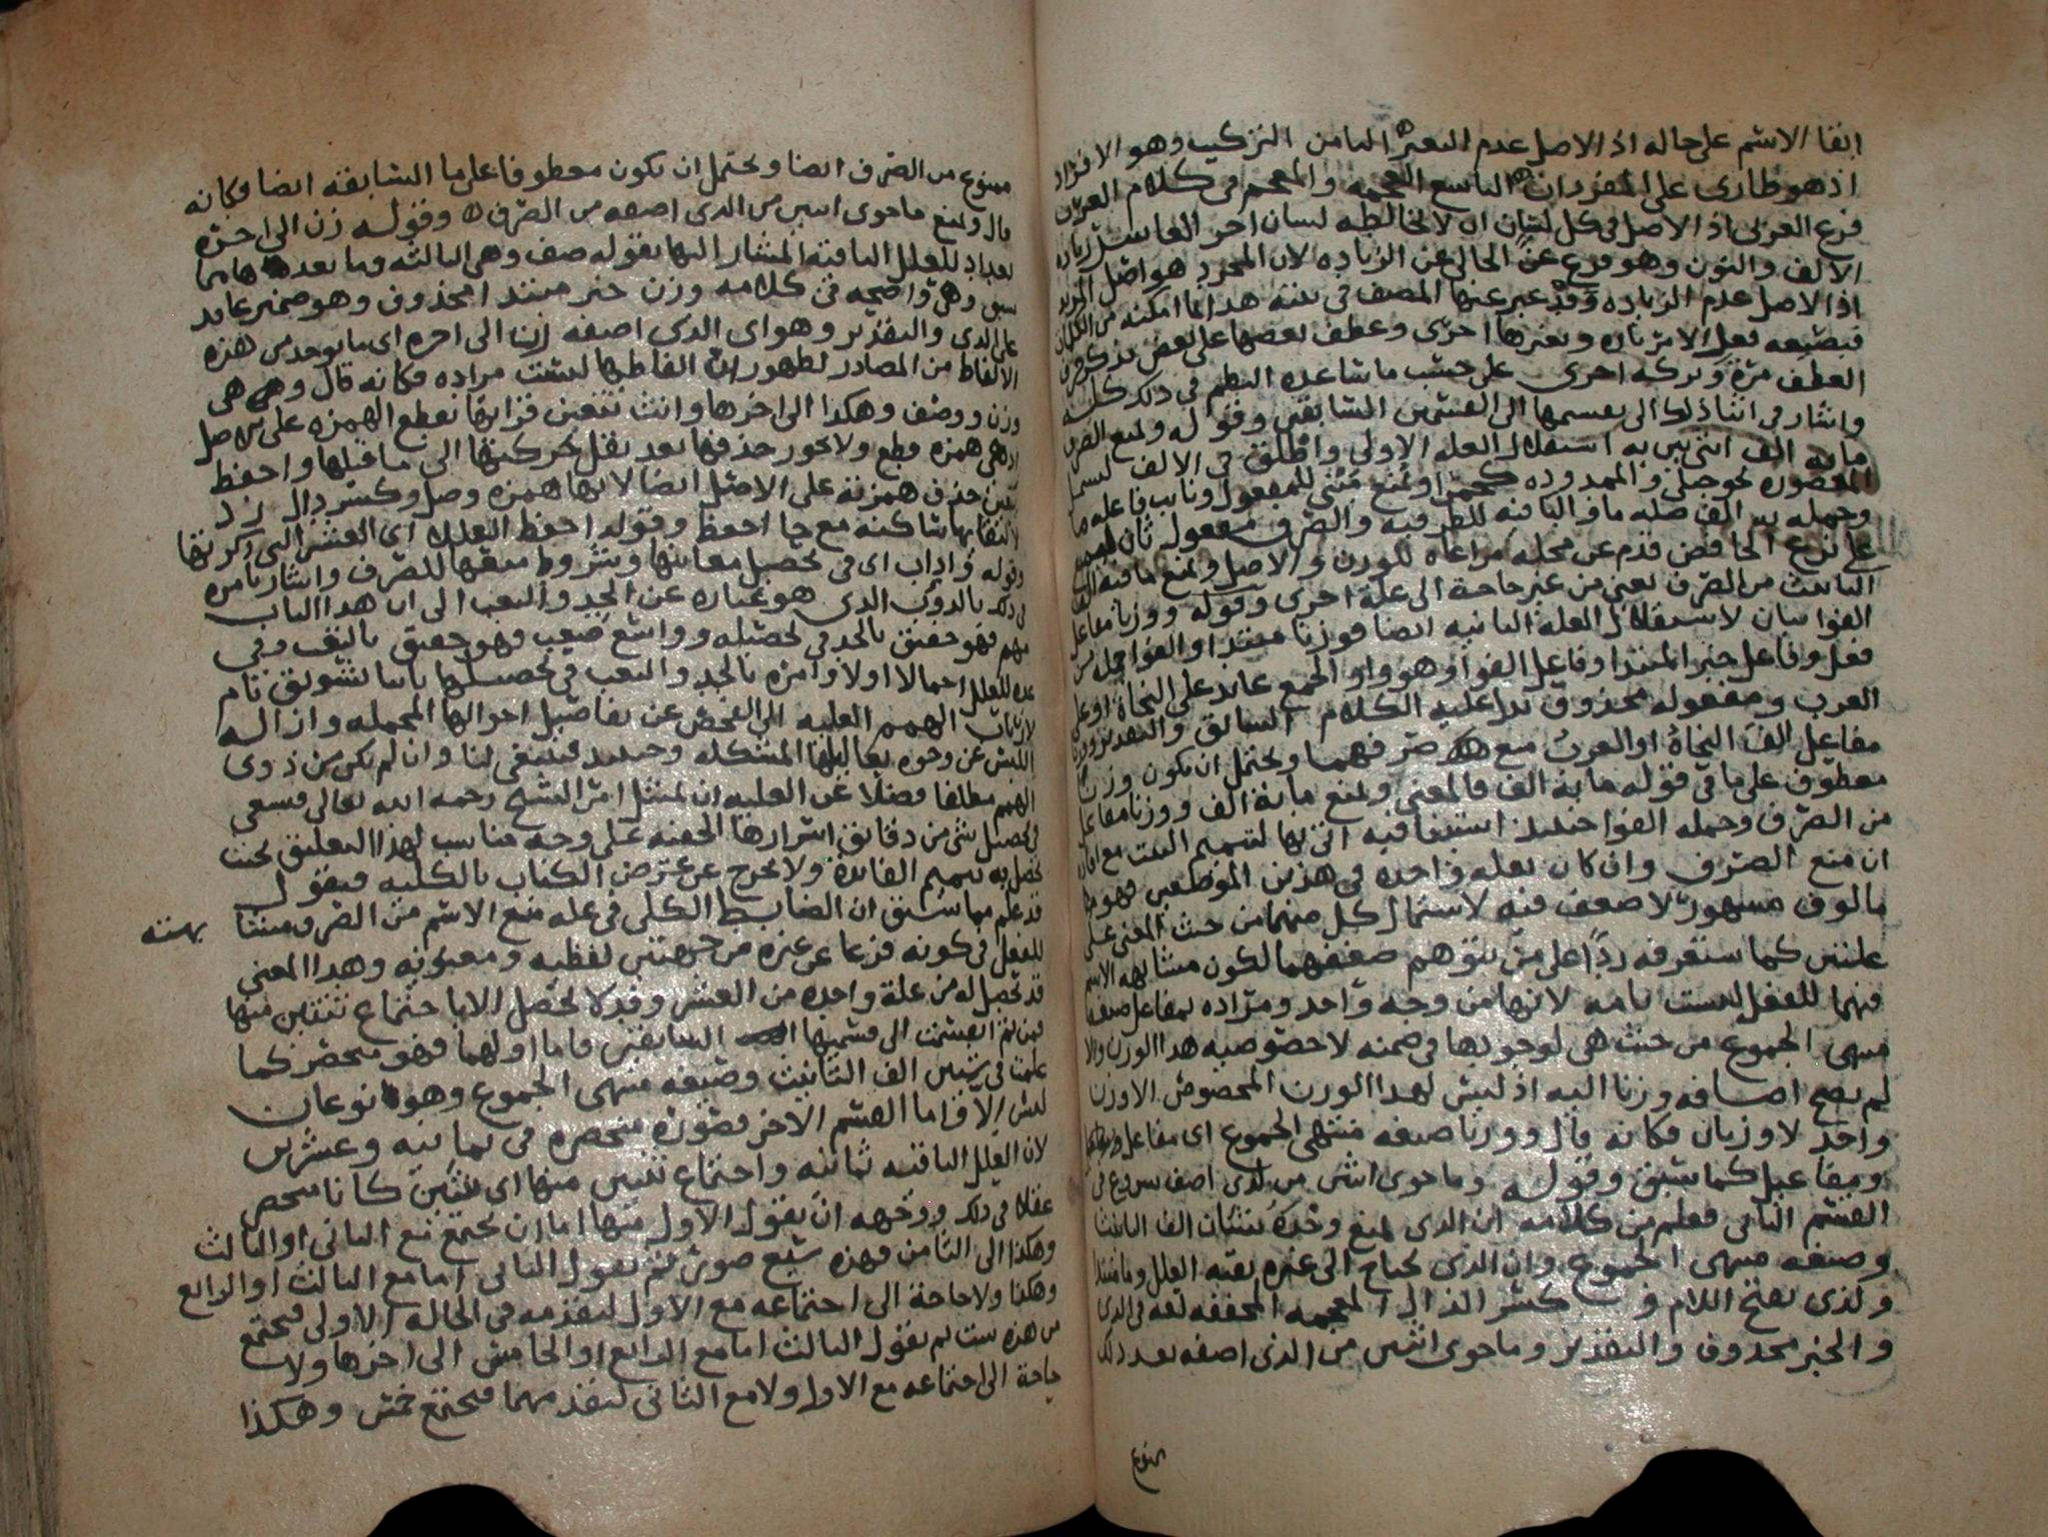 ابقا الاسم على حاله اذ الاصل عدم التغير الثامن التركيب وهو الافراد
اذ هو طارى على المفردات التاسع العجمه والمعجم فى كلام العرب
فرع العربى اذ الاصل فى كل لسان ان لا يخالطه لسان اخر العاشر زياده
الالف والنون وهو فرع عن الخالى عن الزياده لان المجرد هو اصل المزيد
اذ الاصل عدم الزياده وقد عبر عنها المصنف فى هذا بما امكنه من الكلمات
فبصيغه فعل الامر تاره وبغيرها اخرى وعطف بعضها على بعض بذكر حرف
العطف مرة وتركه اخرى على حسب ما ساعده النظم فى ذلك كله
واشار فى اثنا ذلك الى تقسيمها الى القسمين السابقين وقوله ويمنع الصرف
ما به الف انثى بين به استقلال العله الاولى واطلق فى الالف
المقصوره نحو حبلى والممدوده كحمرا ويمنع مبنى للمفعول ونايب فاعله ما
وجمله به الف صله ما والبا فيه للظرفيه والصرف مفعول ثان
على نزع الخافض قدم عن محله مراعاه للوزن والاصل ويمنع ما فيه الف
التانيث من الصرف يعنى من غير حاجة الى علة اخرى وقوله ووزنا مفاعل
الفوا بيان لاستقلال العله الثانيه ايضا فوزنا مبتدا والفوا جمله من
فعل وفاعل خبر المبتدا وفاعل الفوا وهو واو الجمع عايد على النحاة او على
العرب ومفعوله محذوف دل عليه الكلام السابق والتقدير ووزنا
مفاعل الف النحاة او العرب منع صرفهما ويحتمل ان يكون وزنا
معطوف على ما فى قوله ما به الف فالمعنى ويمنع ما به الف ووزنا مفاعل
من الصرف وجمله الفوا حينيذ استينافيه اتى بها لتتميم البيت مع افاده
ان منع الصرف وان كان بعله واحده فى هذين الموضعين فهو
مالوف مشهور لا ضعف فيه لاشتمال كل منهما من حيث المعنى على
علتين كما ستعرفه ردا على من يتوهم ضعفهما لكون مشابهه الاسم
فيهما للفعل ليست تامه لانها من وجه واحد ومراده بمفاعل صيغه
منتهى الجموع من حيث هى لوجودها فى ضمنه لا خصوصيه هذا الوزن والا
لم يصح اضافه وزنا اليه اذ ليس لهذا الوزن المخصوص الا وزن
واحد لا وزنان فكانه قال ووزنا صيغه منتهى الجموع اى مفاعل
ومفاعيل كما سبق وقوله وما حوى اثنين من لذى اصف شروع فى
القسم الثانى فعلم من كلامه ان الذى يمنع وحده شيئان الف التانيث
وصيغه منتهى الجموع وان الذى يحتاج الى غيره بقيه العلل وما مبتدا
ولذى بفتح اللام وكسر الذال المعجمه المخففه لغه فى الذى
والخبر محذوف والتقدير وما حوى اثنين من الذى اصفه بعد ذلك
ممنوع
ممنوع من الصرف ايضا ويحتمل ان يكون معطوفا على ما السابقه ايضا فكانه
قال ويمنع ما حوى اثنين من الذى اصفه من الصرف وقوله زن الى اخره
تعداد للعلل الباقيه المشار اليها بقوله صف وهى الثالثه وما بعدها مما
سبق وهى واضحه فى كلامه وزن خبر مبتدا محذوف وهو ضمير عايد
على الذى والتقدير وهو اى الذى اصفه زن الى اخره اى ما يوخذ من هذه
الالفاظ من المصادر لظهور ان الفاظها ليست مراده فكانه قال وهى
وزن ووصف وهكذا الى اخرها وانث يتعين قراتها بقطع الهمزه على الاصل
اذ هى همزه قطع ولا يجوز حذفها بعد نقل حركتها الى ما قبلها واحفظ
يتعين حذف همزته على الاصل ايضا لانها همزه وصل وكسر دال زد
لالتقايها ساكنه مع حا احفظ وقوله احفظ العلل اى العشر التى ذكرتها
وقوله واداب اى فى تحصيل معانيها وشروط منعها للصرف واشار بامره
فى ذلك بالدوب الذى هو عباره عن الجد والتعب الى ان هذا الباب
مهم فهو حقيق بالجد فى تحصيله وواسع صعب فهو حقيق بالتعب وفى
عده للعلل اجمالا اولا وامره بالجد والتعب فى تحصيلها ثانيا تشويق تام
لارباب الهمم العليه الى الفحص عن تفاصيل احوالها المجمله وازاله
اللبس عن وجوه المشكله وحينيذ فينبغى لنا وان لم نكن من ذوى
الهمم مطلقا فضلا عن العليه ان نمتثل امر الشيخ رحمه الله تعالى فنسعى
فى تحصيل شى من دقايق اسرارها الخفيه على وجه مناسب لهذا التعليق بحيث
تحصل به تتميم الفايدة ولا يخرج عن غرض الكتاب بالكليه فنقول
قد علم مما سبق ان الضابط الكلى فى عله منع الاسم من الصرف مشابهته
للفعل فى كونه فرعا عن غيره من جهتين لفظيه ومعنويه وهذا المعنى
قد تحصل له من علة واحده من العشر وقد لا تحصل الا باجتماع ثنتين منها
فمن ثم انقسمت الى قسميها السابقين فاما اولهما فهو منحصر كما
علمت فى شيئين الف التانيث وصيغه منتهى الجموع وهو نوعان
ليس الا واما القسم الاخر فصوره منحصره فى ثمانيه وعشرين
لان العلل الباقيه ثمانيه واجتماع ثنتين منها اى ثنتين كانا منحصر
عقلا فى ذلك ووجهه ان نقول الاول منها اما ان يجتمع مع الثانى او الثالث
وهكذا الى الثامن فهذه سبع صور ثم نقول الثانى اما مع الثالث او الرابع
وهكذا ولا حاجة الى اجتماعه مع الاول لتقدمه فى الحاله الاولى فيجتمع
من هذه ست ثم نقول الثالث اما مع الرابع او الخامس الى اخرها ولا
حاجة الى اجتماعه مع الاول ولا مع الثانى لتقدمهما فيجتمع خمس وهكذا